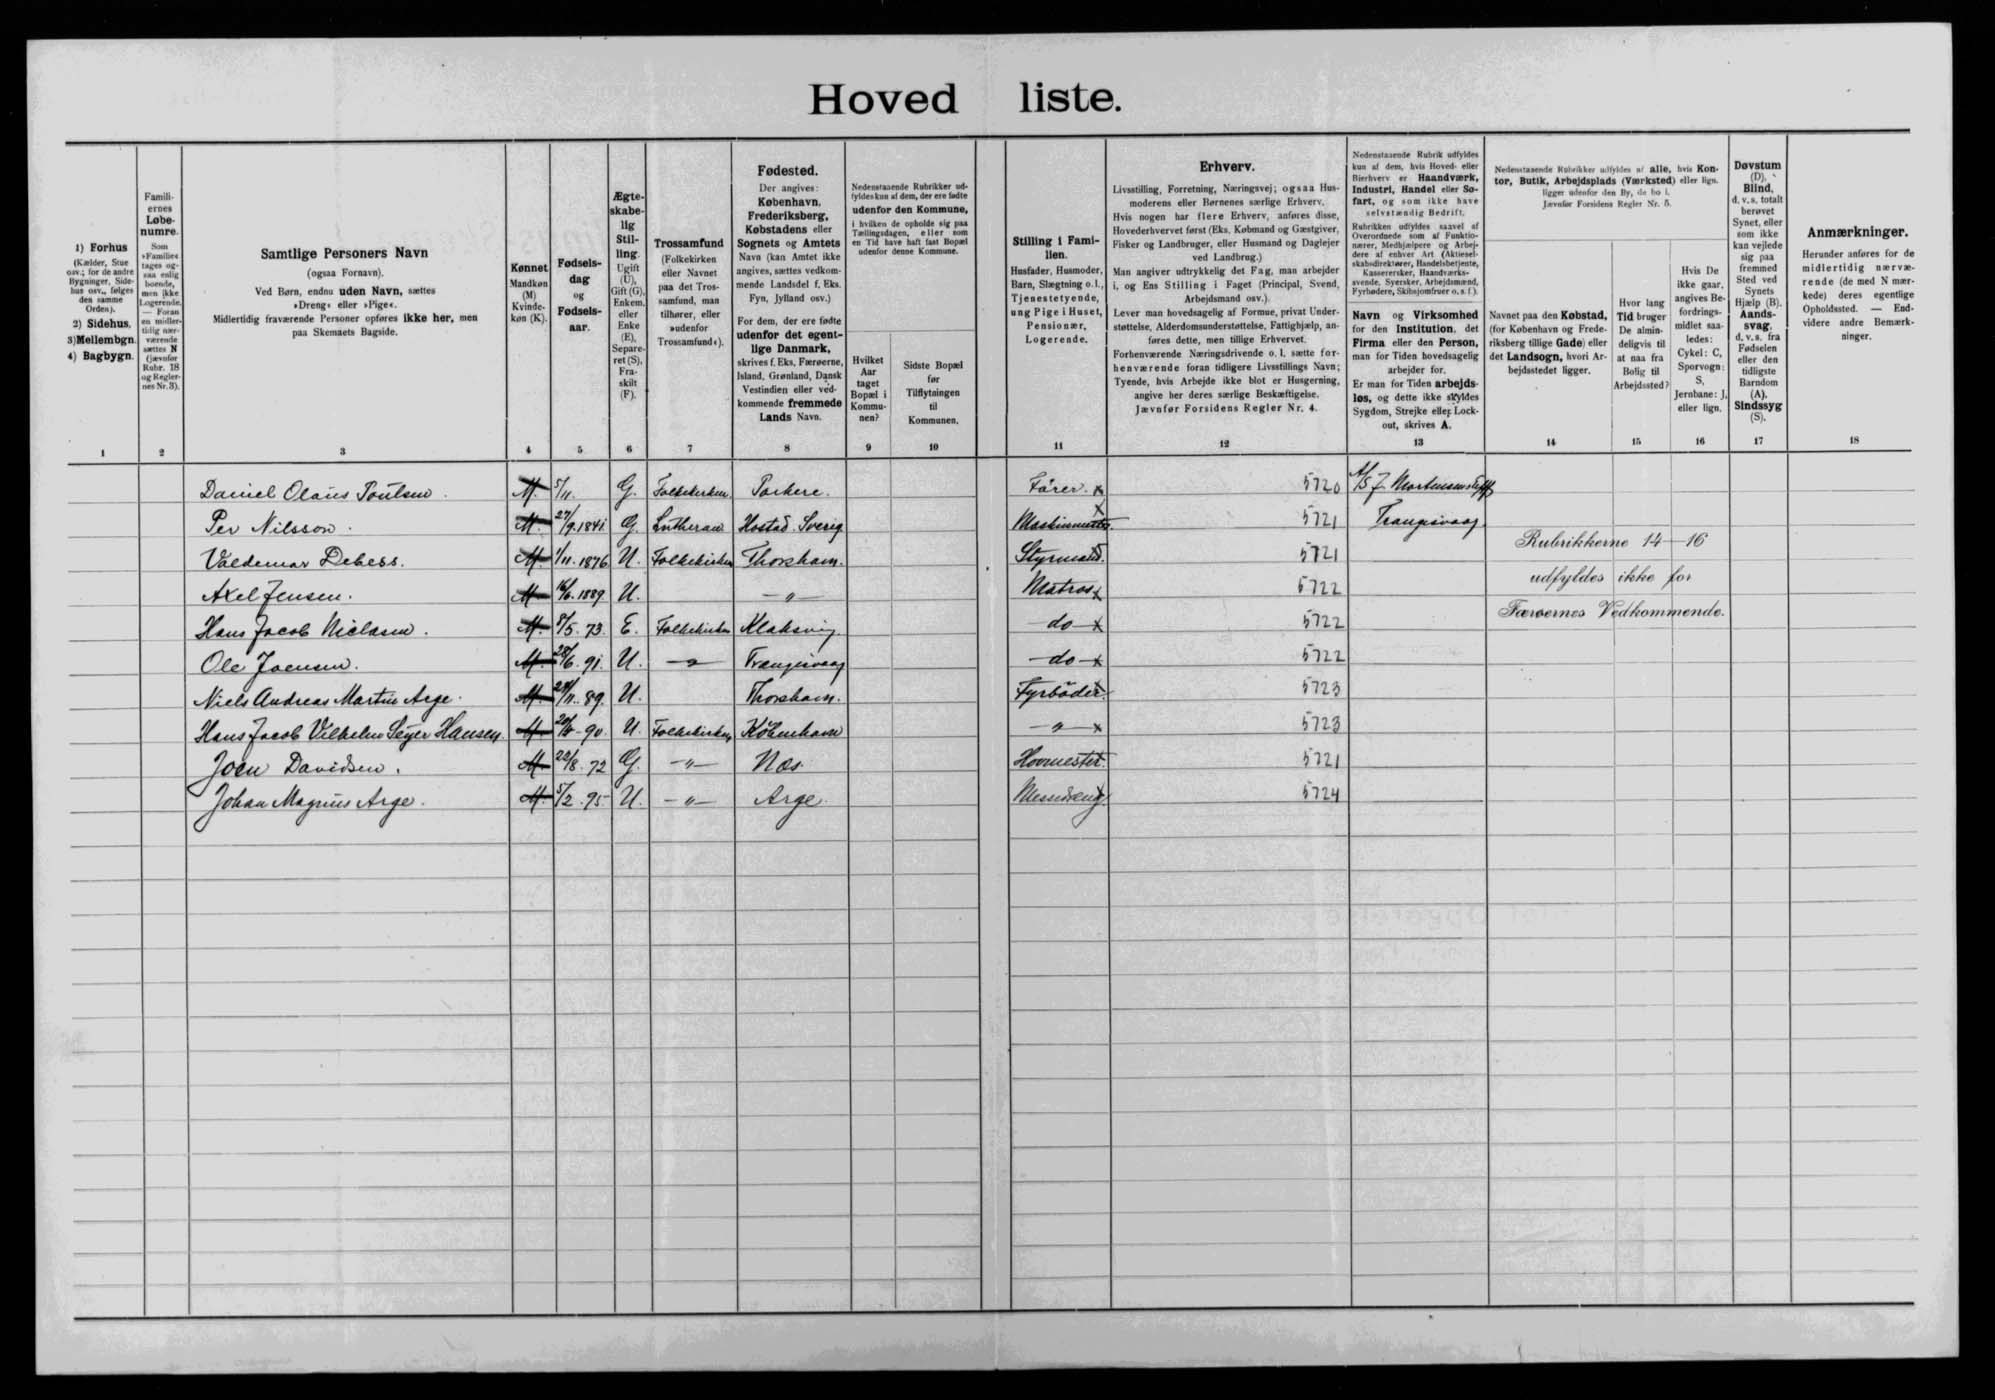 Hoved liste.
1) Forhus
(Kælder, Stue
osv.; for de andre
Bygninger, Side-
hus osv., følges
den samme
Orden).
2) Sidehus,
3) Mellembgn.
4) Bagbygn.
1
Famili-
ernes
Løbe-
numre.
Som
»Familie«
tages og-
saa enlig
boende,
men ikke
Logerende.
— Foran
en midler-
tidig nær-
værende
sættes N
(jævnfør
Rubr. 18
og Regler-
nes Nr. 3).
2
Samtlige Personers Navn
(ogsaa Fornavn).
Ved Børn, endnu uden Navn, sættes
»Dreng« eller »Pige«.
Midlertidig fraværende Personer opføres ikke her, men
paa Skemaets Bagside.
3
Kønnet
Mandkøn
(M)
Kvinde-
køn (K).
4
Fødsels-
dag
og
Fødsels-
aar.
5
Ægte-
skabe-
lig
Stil-
ling.
Ugift
(U),
Gift (G),
Enkem.
eller
Enke
(E),
Separe-
ret (S),
Fra-
skilt
(F).
6
Trossamfund
(Folkekirken
eller Navnet
paa det Tros-
samfund, man
tilhører, eller
»udenfor
Trossamfund«).
7
Fødested.
Der angives:
København,
Frederiksberg,
Købstadens eller
Sognets og Amtets
Navn (kan Amtet ikke
angives, sættes vedkom-
mende Landsdel f. Eks.
Fyn, Jylland osv.)
For dem, der ere fødte
udenfor det egent-
lige Danmark,
skrives f. Eks. Færøerne,
Island, Grønland, Dansk
Vestindien eller ved-
kommende fremmede
Lands Navn.
8
Nedenstaaende Rubrikker ud-
fyldes kun af dem, der ere fødte
udenfor den Kommune,
i hvilken de opholde sig paa
Tællingsdagen, eller som
en Tid have haft fast Bopæl
udenfor denne Kommune.
Hvilket
Aar
taget
Bopæl i
Kommu-
nen?
9
Sidste Bopæl
før
Tilflytningen
til
Kommunen.
10
Stilling i Fami-
lien.
Husfader, Husmoder,
Barn, Slægtning o.l.,
Tjenestetyende,
ung Pige i Huset,
Pensionær,
Logerende.
11
Erhverv.
Livsstilling, Forretning, Næringsvej; ogsaa Hus-
moderens eller Børnenes særlige Erhverv.
Hvis nogen har flere Erhverv, anføres disse,
Hovederhvervet først (Eks. Købmand og Gæstgiver,
Fisker og Landbruger, eller Husmand og Daglejer
ved Landbrug.)
Man angiver udtrykkelig det Fag, man arbejder
i, og Ens Stilling i Faget (Principal, Svend,
Arbejdsmand osv.).
Lever man hovedsagelig af Formue, privat Under-
støttelse, Alderdomsunderstøttelse, Fattighjælp, an-
føres dette, men tillige Erhvervet.
Forhenværende Næringsdrivende o. l. sætte for-
henværende foran tidligere Livsstillings Navn;
Tyende, hvis Arbejde ikke blot er Husgerning,
angive her deres særlige Beskæftigelse.
Jævnfør Forsidens Regler Nr. 4.
12
Nedenstaaende Rubrik udfyldes
kun af dem, hvis Hoved- eller
Bierhverv er Haandværk,
Industri, Handel eller Sø-
fart, og som ikke have
selvstændig Bedrift.
Rubrikken udfyldes saavel af
Overordnede som af Funktio-
nærer, Medhjælpere og Arbej-
dere af enhver Art (Aktiesel-
skabsdirektører, Handelsbetjente,
Kasserersker, Haandværks-
svende, Syersker, Arbejdsmænd,
Fyrbødere, Skibsjomfruer o. s. f.).
Navn og Virksomhed
for den Institution, det
Firma eller den Person,
man for Tiden hovedsagelig
arbejder for.
Er man for Tiden arbejds-
løs, og dette ikke skyldes
Sygdom, Strejke eller Lock-
out, skrives A.
13
Nedenstaaende Rubrikker udfyldes af alle, hvis Kon-
tor, Butik, Arbejdsplads (Værksted) eller lign.
ligger udenfor den By, de bo i.
Jævnfør Forsidens Regler Nr. 5.
Navnet paa den Købstad,
(for København og Frede-
riksberg tillige Gade) eller
det Landsogn, hvori Ar-
bejdsstedet ligger.
14
Hvor lang
Tid bruger
De almin-
deligvis til
at naa fra
Bolig til
Arbejdssted?
15
Hvis De
ikke gaar,
angives Be-
fordrings-
midlet saa-
ledes:
Cykel: C,
Sporvogn:
S,
Jernbane: J,
eller lign.
16
Døvstum
(D),
Blind,
d. v. s. totalt
berøvet
Synet, eller
som ikke
kan vejlede
sig paa
fremmed
Sted ved
Synets
Hjælp (B).
Aands-
svag,
d. v. s. fra
Fødselen
eller den
tidligste
Barndom
(A).
Sindssyg
(S).
17
Anmærkninger.
Herunder anføres for de
midlertidig nærvæ-
rende (de med N mær-
kede) deres egentlige
Opholdssted. — End-
videre andre Bemærk-
ninger.
18
Daniel Olaus Poulsen. M. 5/11. G. Folkekirken Porkere. Fører. x 5720 A/S J Mortensens Eftf
Per Nilsson. M. 27/9.1841 G. Lutheran Hostad. Sverig Maskinmester. x 5721 Trangisvaag
Valdemar Debess. M. 1/11.1876 U. Folkekirken Thorshavn. Styrmand. 5721
Rubrikkerne 14—16
Axel Jensen. M. 16/6.1889. U. —"— Matros x 5722
udfyldes ikke for
Hans Jacob Niclasen. M. 8/5.73. E. Folkekirken Klaksvig. -do- x 5722
Færøernes Vedkommende.
Ole Joensen. M. 28/6.91. U. —"— Trangisvaag -do- x 5722
Niels Andreas Martin Arge. M. 24/11.89. U. Thorshavn. Fyrbøder. 5723
Hans Jacob Vilhelm Seyer Hansen M. U. Folkekirken København —"— x 5723
Joen Davidsen. M. 22/8.72 G. —"— Næs. Hovmester. 5721
Johan Magnus Arge. M. 5/2.95 U. —"— Arge. Messedreng 5724